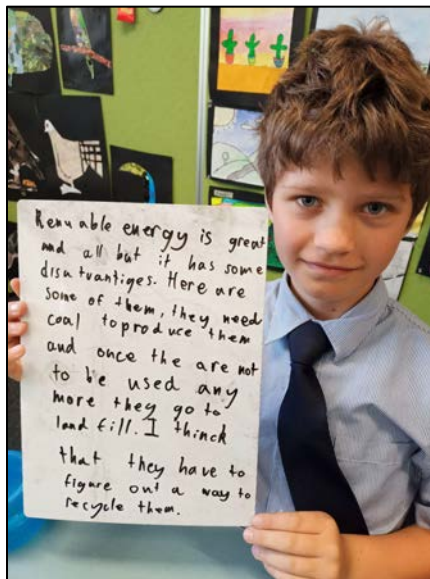 Renuable energy is great
and all but it has some
disatvantiges. Here are
some of them, they need
coal toproduce them
and once the are not
to be used any
more they go to
land fill. I thinck
that they have to
figure out a way to
recycle them.